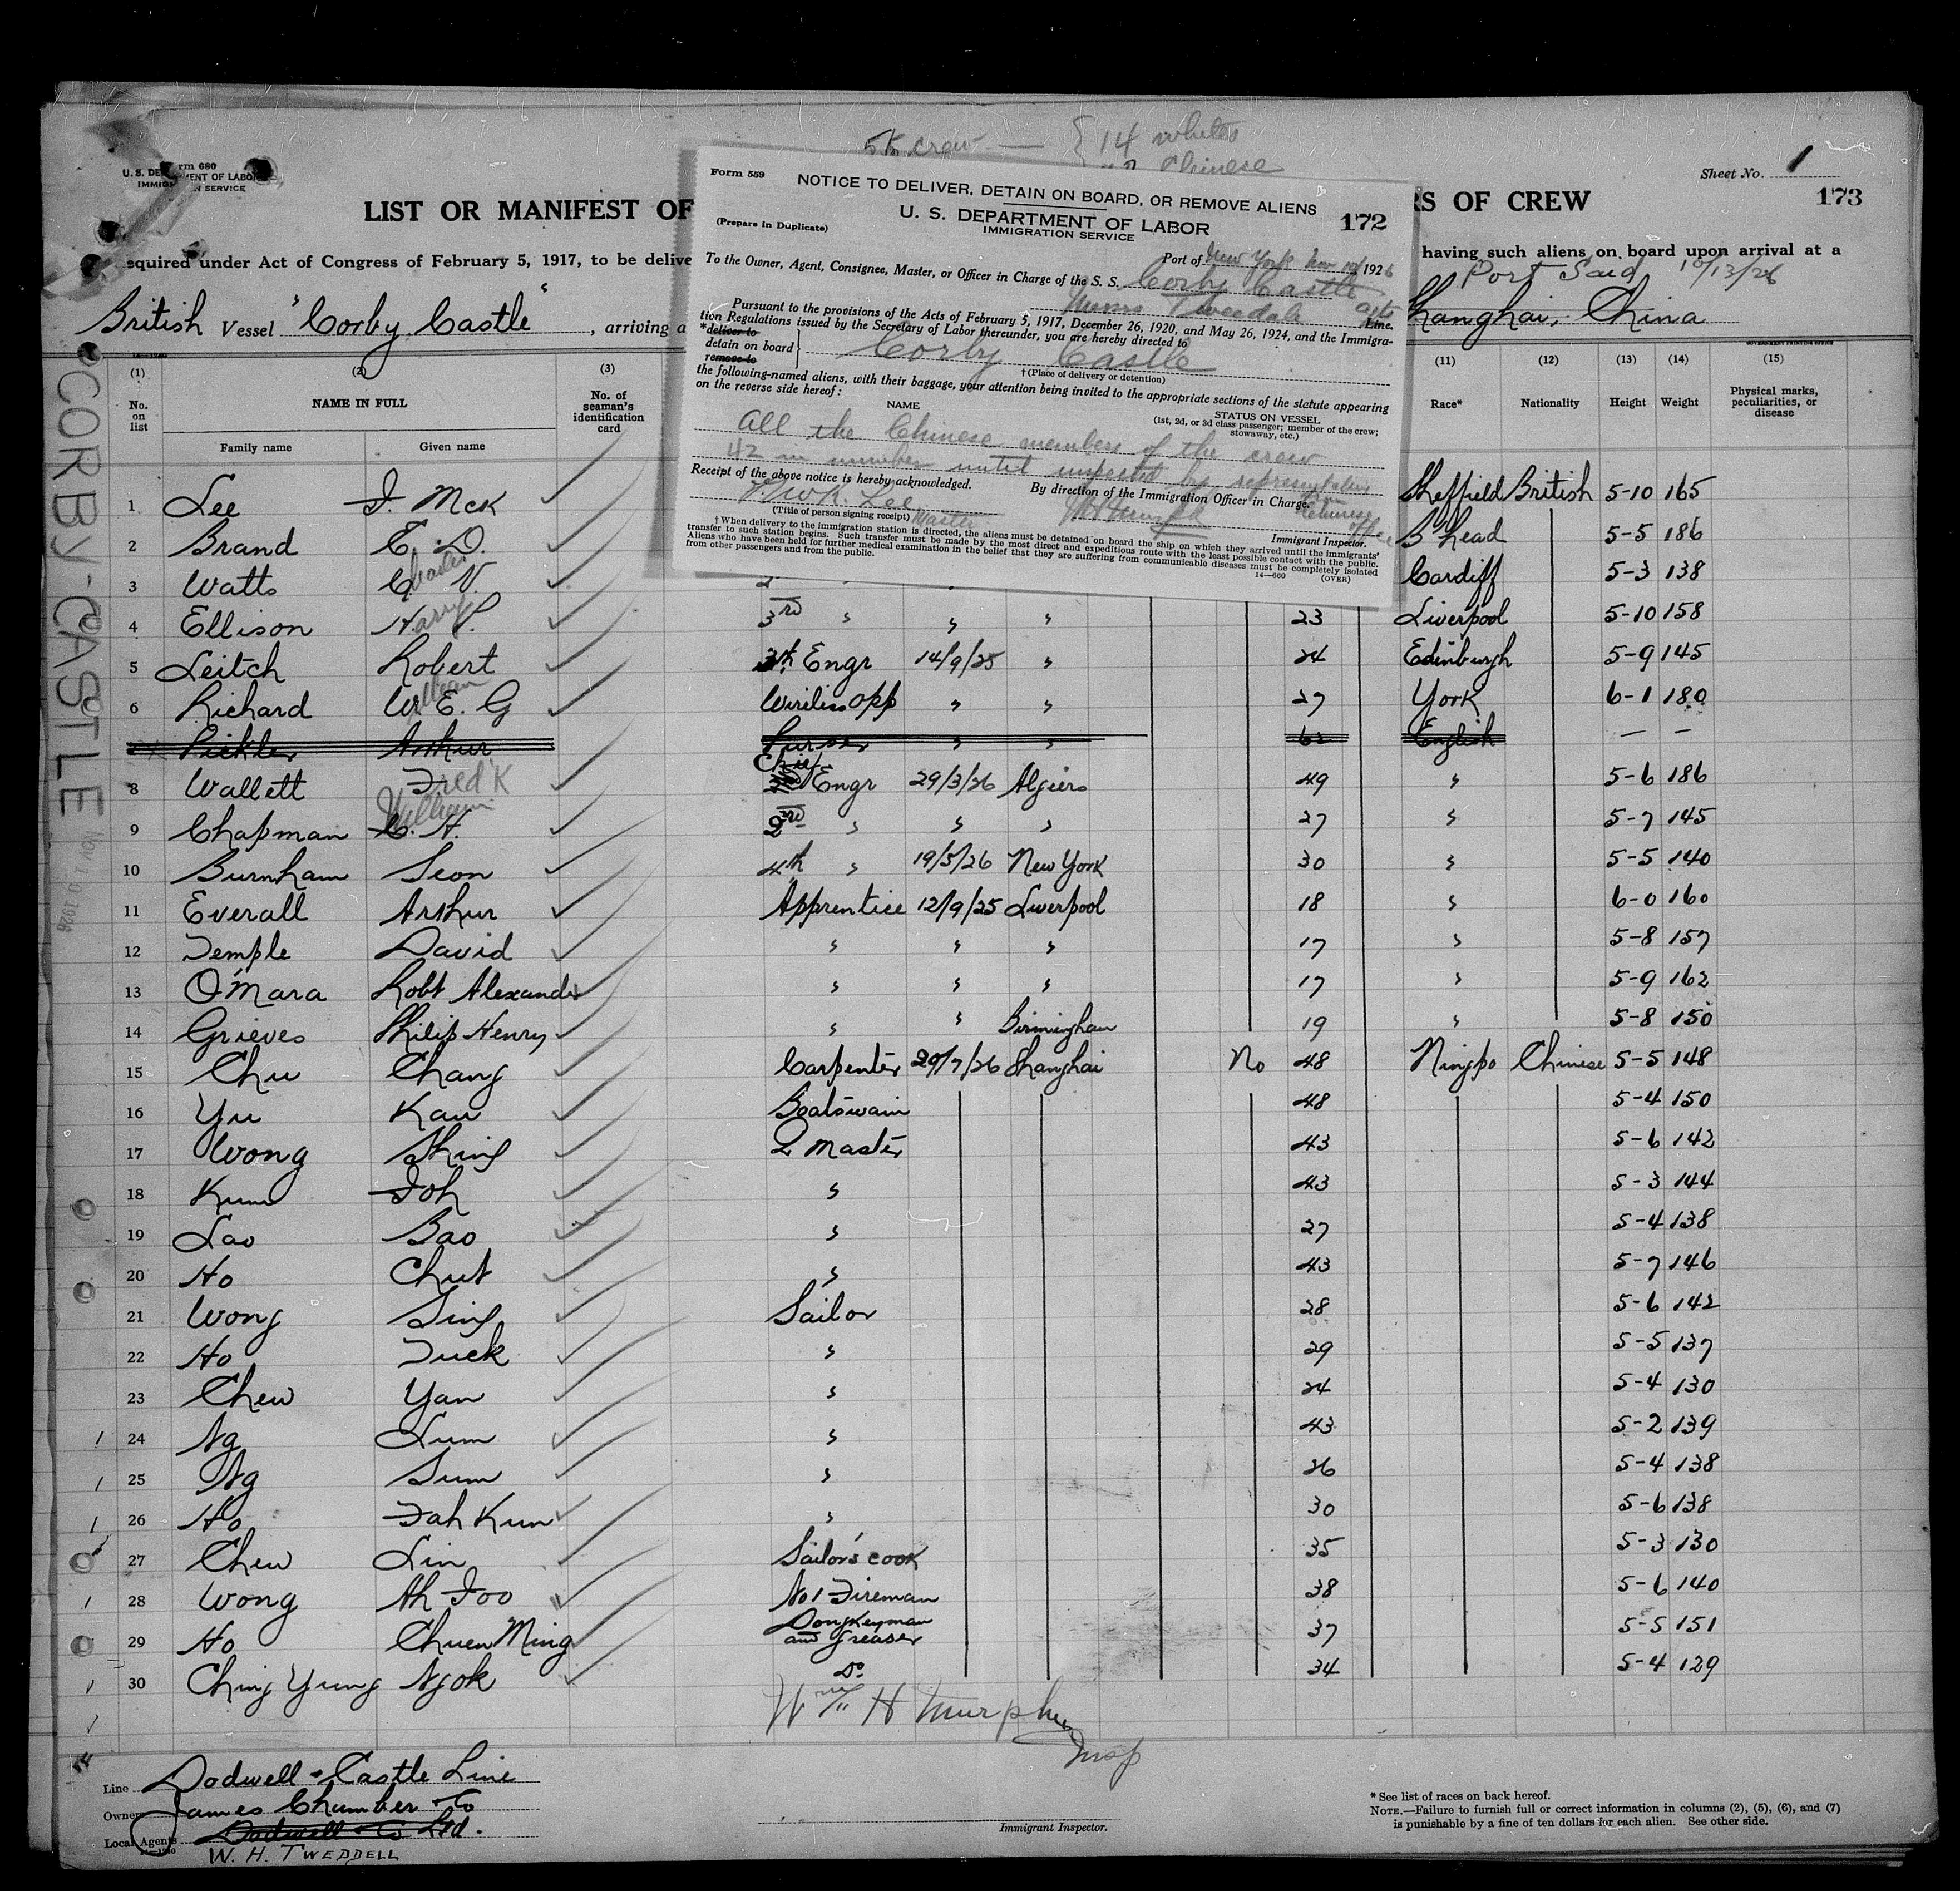 56 crew — { 14 whites
Chinese
Form 680
U. S. DEPARTMENT OF LABOR
IMMIGRATION SERVICE
Sheet No. 1
173
LIST OR MANIFEST OF
RS OF CREW
equired under Act of Congress of February 5, 1917, to be delive
having such aliens on board upon arrival at a
Port Said 10/13/26
British Vessel "Corby Castle", arriving a
Shanghai, China
Form 559
NOTICE TO DELIVER, DETAIN ON BOARD, OR REMOVE ALIENS
(Prepare in Duplicate)
U. S. DEPARTMENT OF LABOR
172
IMMIGRATION SERVICE
Port of New York Nov 10 1926
To the Owner, Agent, Consignee, Master, or Officer in Charge of the S. S. Corby Castle
Messrs Tweedale agts Line.
Pursuant to the provisions of the Acts of February 5, 1917, December 26, 1920, and May 26, 1924, and the Immigra-
tion Regulations issued by the Secretary of Labor thereunder, you are hereby directed to
*deliver to
detain on board } Corby Castle
remove to
†(Place of delivery or detention)
the following-named aliens, with their baggage, your attention being invited to the appropriate sections of the statute appearing
on the reverse side hereof:
NAME
STATUS ON VESSEL
(1st, 2d, or 3d class passenger; member of the crew;
stowaway, etc.)
All the Chinese members of the crew
42 in number until inspected by representative
from Chinese Office
Receipt of the above notice is hereby acknowledged.
By direction of the Immigration Officer in Charge.
Lee
(Title of person signing receipt) Master
Immigrant Inspector.
†When delivery to the immigration station is directed, the aliens must be detained on board the ship on which they arrived until the immigrants'
transfer to such station begins. Such transfer must be made by the most direct and expeditious route with the least possible contact with the public.
Aliens who have been held for further medical examination in the belief that they are suffering from communicable diseases must be completely isolated
from other passengers and from the public.
14—660 (OVER)
CORBY-CASTLE Nov 10 1926
(1) (2) (3) (11) (12) (13) (14) (15)
GOVERNMENT PRINTING OFFICE
No. on list
NAME IN FULL
Family name Given name
No. of seaman's identification card
Race* Nationality Height Weight
Physical marks, peculiarities, or disease
1 Lee I. McK Sheffield British 5-10 165
2 Brand E. D. B'head 5-5 186
3 Watts C. V. Charles 2 Cardiff 5-3 138
4 Ellison H. P. Harry 3rd " " " 23 Liverpool 5-10 158
5 Leitch Robert 3th Engr 14/9/25 " 24 Edinburgh 5-9 145
6 Richard W. E. G William Wireliss opp " " 27 York 6-1 180
Pickler Arthur Purser " " 62 English — —
8 Wallett Fred'K Chief Engr 29/3/26 Algiers 49 " 5-6 186
9 Chapman C. H. William 2nd " " " 27 " 5-7 145
10 Burnham Leon 4th " 19/5/26 New York 30 " 5-5 140
11 Everall Arthur Apprentice 12/9/25 Liverpool 18 " 6-0 160
12 Temple David " " " 17 " 5-8 157
13 O'Mara Robt Alexander " " " 17 " 5-9 162
14 Grieves Philip Henry " " Birmingham 19 " 5-8 150
15 Chu Chang Carpenter 29/7/26 Shanghai No 48 Ningpo Chinese 5-5 148
16 Yu Kau Boatswain 48 5-4 150
17 Wong Shing Q Master 43 5-6 142
18 Kum Foh " 43 5-3 144
19 Lao Bao " 27 5-4 138
20 Ho Chut " 43 5-7 146
21 Wong Sing Sailor 28 5-6 142
22 Ho Tuck " 29 5-5 137
23 Chew Yan " 24 5-4 130
24 Ng Lum " 43 5-2 139
25 Ng Sum " 26 5-4 138
26 Ho Fah Kun " 30 5-6 138
27 Chew Lin Sailor's cook 35 5-3 130
28 Wong Ah Foo No 1 Fireman 38 5-6 140
29 Ho Chuen Ming Donkeyman and Greaser 37 5-5 151
30 Ching Yung Ngok Do 34 5-4 129
Wm H Murphy
Insp
Line Dodwell-Castle Line
Owners James Chamber & Co
Local Agents Dodwell & Co Ltd.
W. H. TWEDDELL
Immigrant Inspector.
* See list of races on back hereof.
NOTE.—Failure to furnish full or correct information in columns (2), (5), (6), and (7)
is punishable by a fine of ten dollars for each alien. See other side.